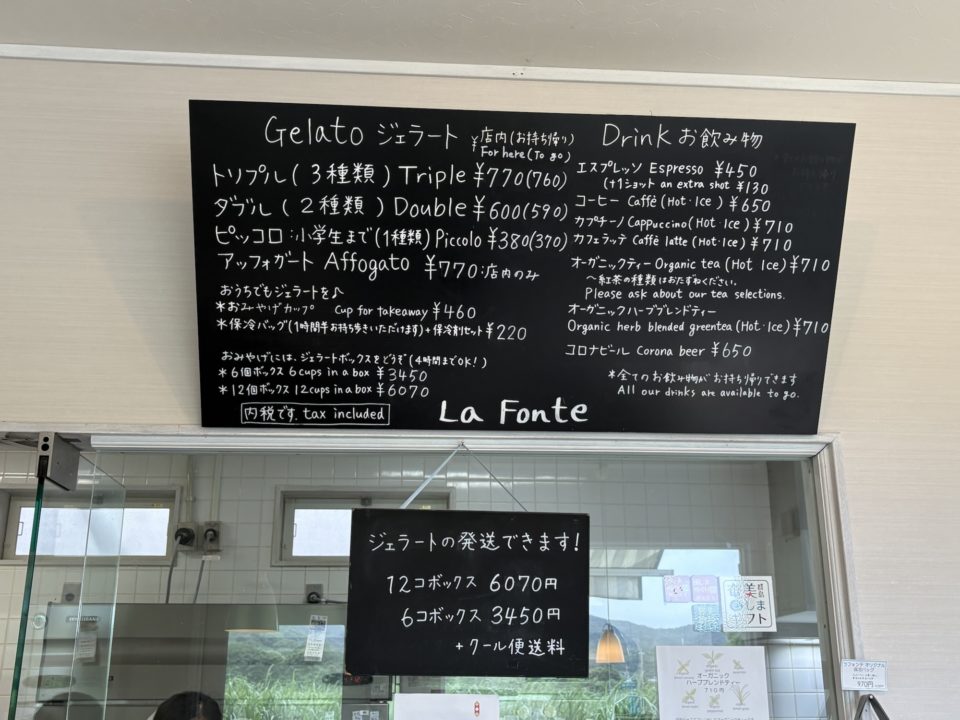 Gelato ジェラート ¥店内(お持ち帰り)
For here(To go)
トリプル(3種類)Triple ¥770(760)
ダブル(2種類)Double ¥600(590)
ピッコロ:小学生まで(1種類)Piccolo ¥380(370)
アッフォガート Affogato ¥770:店内のみ
おうちでもジェラートを♪
*おみやげカップ Cup for takeaway ¥460
*保冷バッグ(1時間半お持ち歩きいただけます)+保冷剤セット ¥220
おみやげには、ジェラートボックスをどうぞ(4時間までOK!)
*6個ボックス 6cups in a box ¥3450
*12個ボックス 12cups in a box ¥6070
内税です. tax included
La Fonte
Drink お飲み物
エスプレッソ Espresso ¥450
(+1ショット an extra shot ¥130
コーヒー Caffè (Hot・Ice) ¥650
カプチーノ Cappuccino (Hot・Ice) ¥710
カフェラッテ Caffè latte (Hot・Ice) ¥710
オーガニックティー Organic tea (Hot Ice) ¥710
〜紅茶の種類はおたずねください。
Please ask about our tea selections.
オーガニックハーブブレンドティー
Organic herb blended greentea (Hot・Ice) ¥710
コロナビール Corona beer ¥650
*全てのお飲み物がお持ち帰りできます
All our drinks are available to go.
ジェラートの発送できます!
12コボックス 6070円
6コボックス 3450円
+クール便送料
オーガニック
ハーブブレンドティー
710円
ラフォンテ オリジナル
保冷バッグ
970円